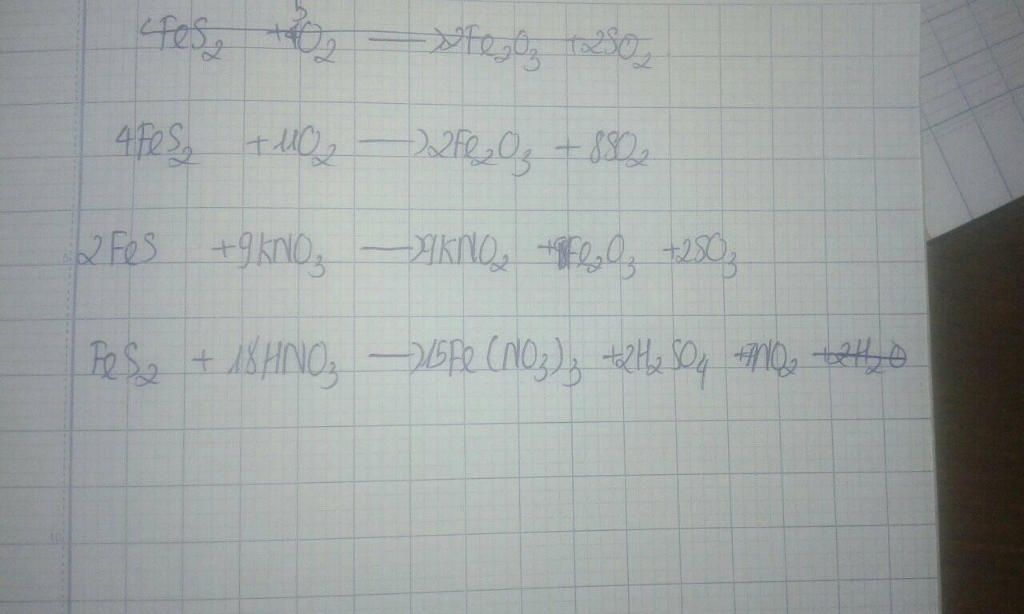 4FeS₂ + O₂ → 2Fe₂O₃ + 2SO₂
4FeS₂ + 11O₂ → 2Fe₂O₃ + 8SO₂
2FeS + 9KNO₃ → 9KNO₂ + Fe₂O₃ + 2SO₃
FeS₂ + 18HNO₃ → 15Fe(NO₃)₃ + 2H₂SO₄ + NO₂ + 2H₂O